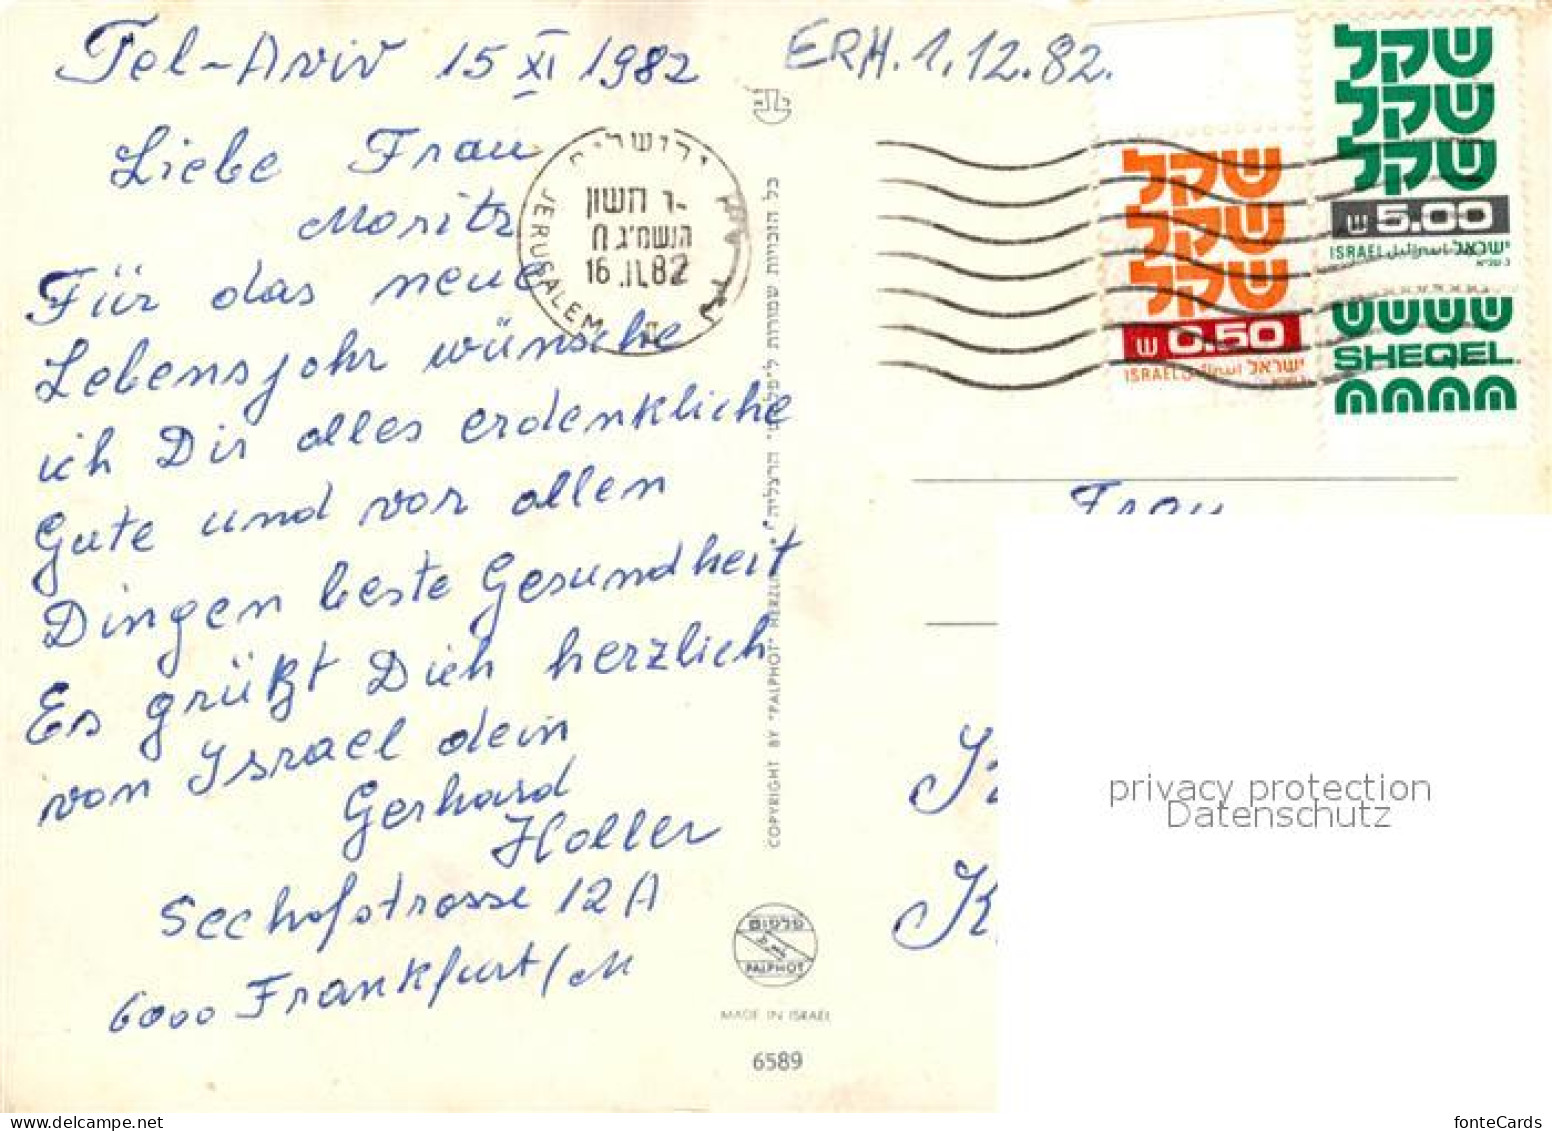 Tel-Aviv 15 XI 1982
Liebe Frau
Moritz
Für das neue
Lebensjahr wünsche
ich Dir alles erdenkliche
Gute und vor allen
Dingen beste Gesundheit
Es grüßt Dich herzlich
von Israel dein
Gerhard
Holler
Seehofstrasse 12A
6000 Frankfurt/M
ירושלים
חשון
התשמ"ג
16 .11.82
JERUSALEM
כל הזכויות שמורות
הרצליה
COPYRIGHT BY "PALPHOT" HERZLIA
פלפוט
PALPHOT
MADE IN ISRAEL
6589
ERH. 1.12.82.
שקל
שקל
שקל
0.50
ISRAEL اسرائيل ישראל
שקל
שקל
שקל
5.00
ISRAEL اسرائيل ישראל
SHEQEL
Frau
privacy protection
Datenschutz
fonteCards